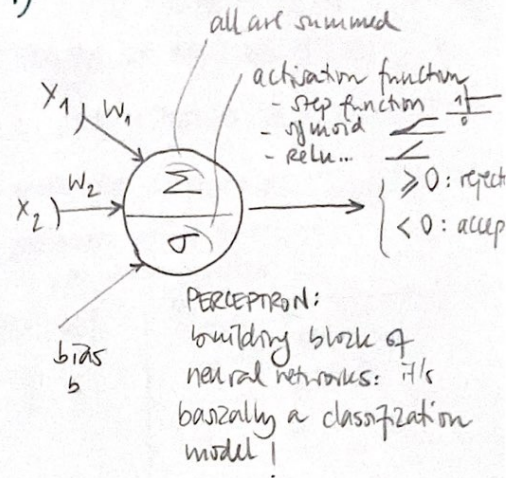 all are summed
activation function
- step function 1 0
- sygmoid
- Relu...
X1 W1
W2
X2
Σ
σ
≥ 0: reject
< 0: accep
bias
b
PERCEPTRON:
building block of
neural networks: it's
basically a classification
model!